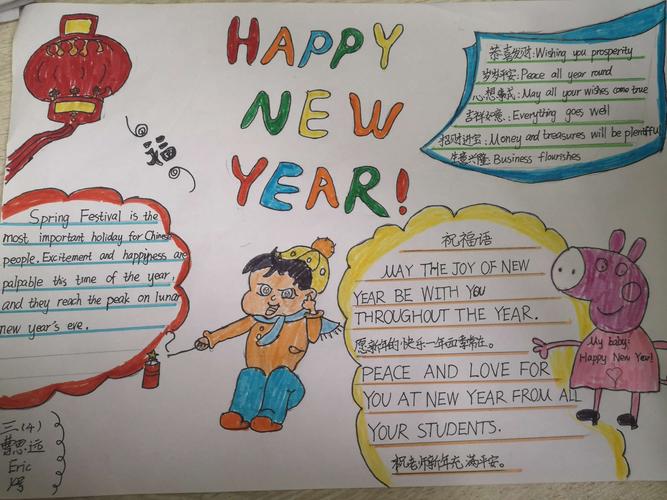 HAPPY
NEW
YEAR!
恭喜发财:Wishing you prosperity
岁岁平安:Peace all year round
心想事成:May all your wishes come true
吉祥如意:Everything goes well
招财进宝:Money and treasures will be plentiful
生意兴隆:Business flourishes
福
Spring Festival is the
most important holiday for Chinese
people. Excitement and happyness are
palpable this time of the year,
and they reach the peak on lunar
new year's eve.
祝福语
MAY THE JOY OF NEW
YEAR BE WITH YOU
THROUGHOUT THE YEAR.
愿新年的快乐一年四季常在。
PEACE AND LOVE FOR
YOU AT NEW YEAR FROM ALL
YOUR STUDENTS.
祝老师新年充满平安。
My baby:
Happy New Year!
三(4)
曹思远
Eric